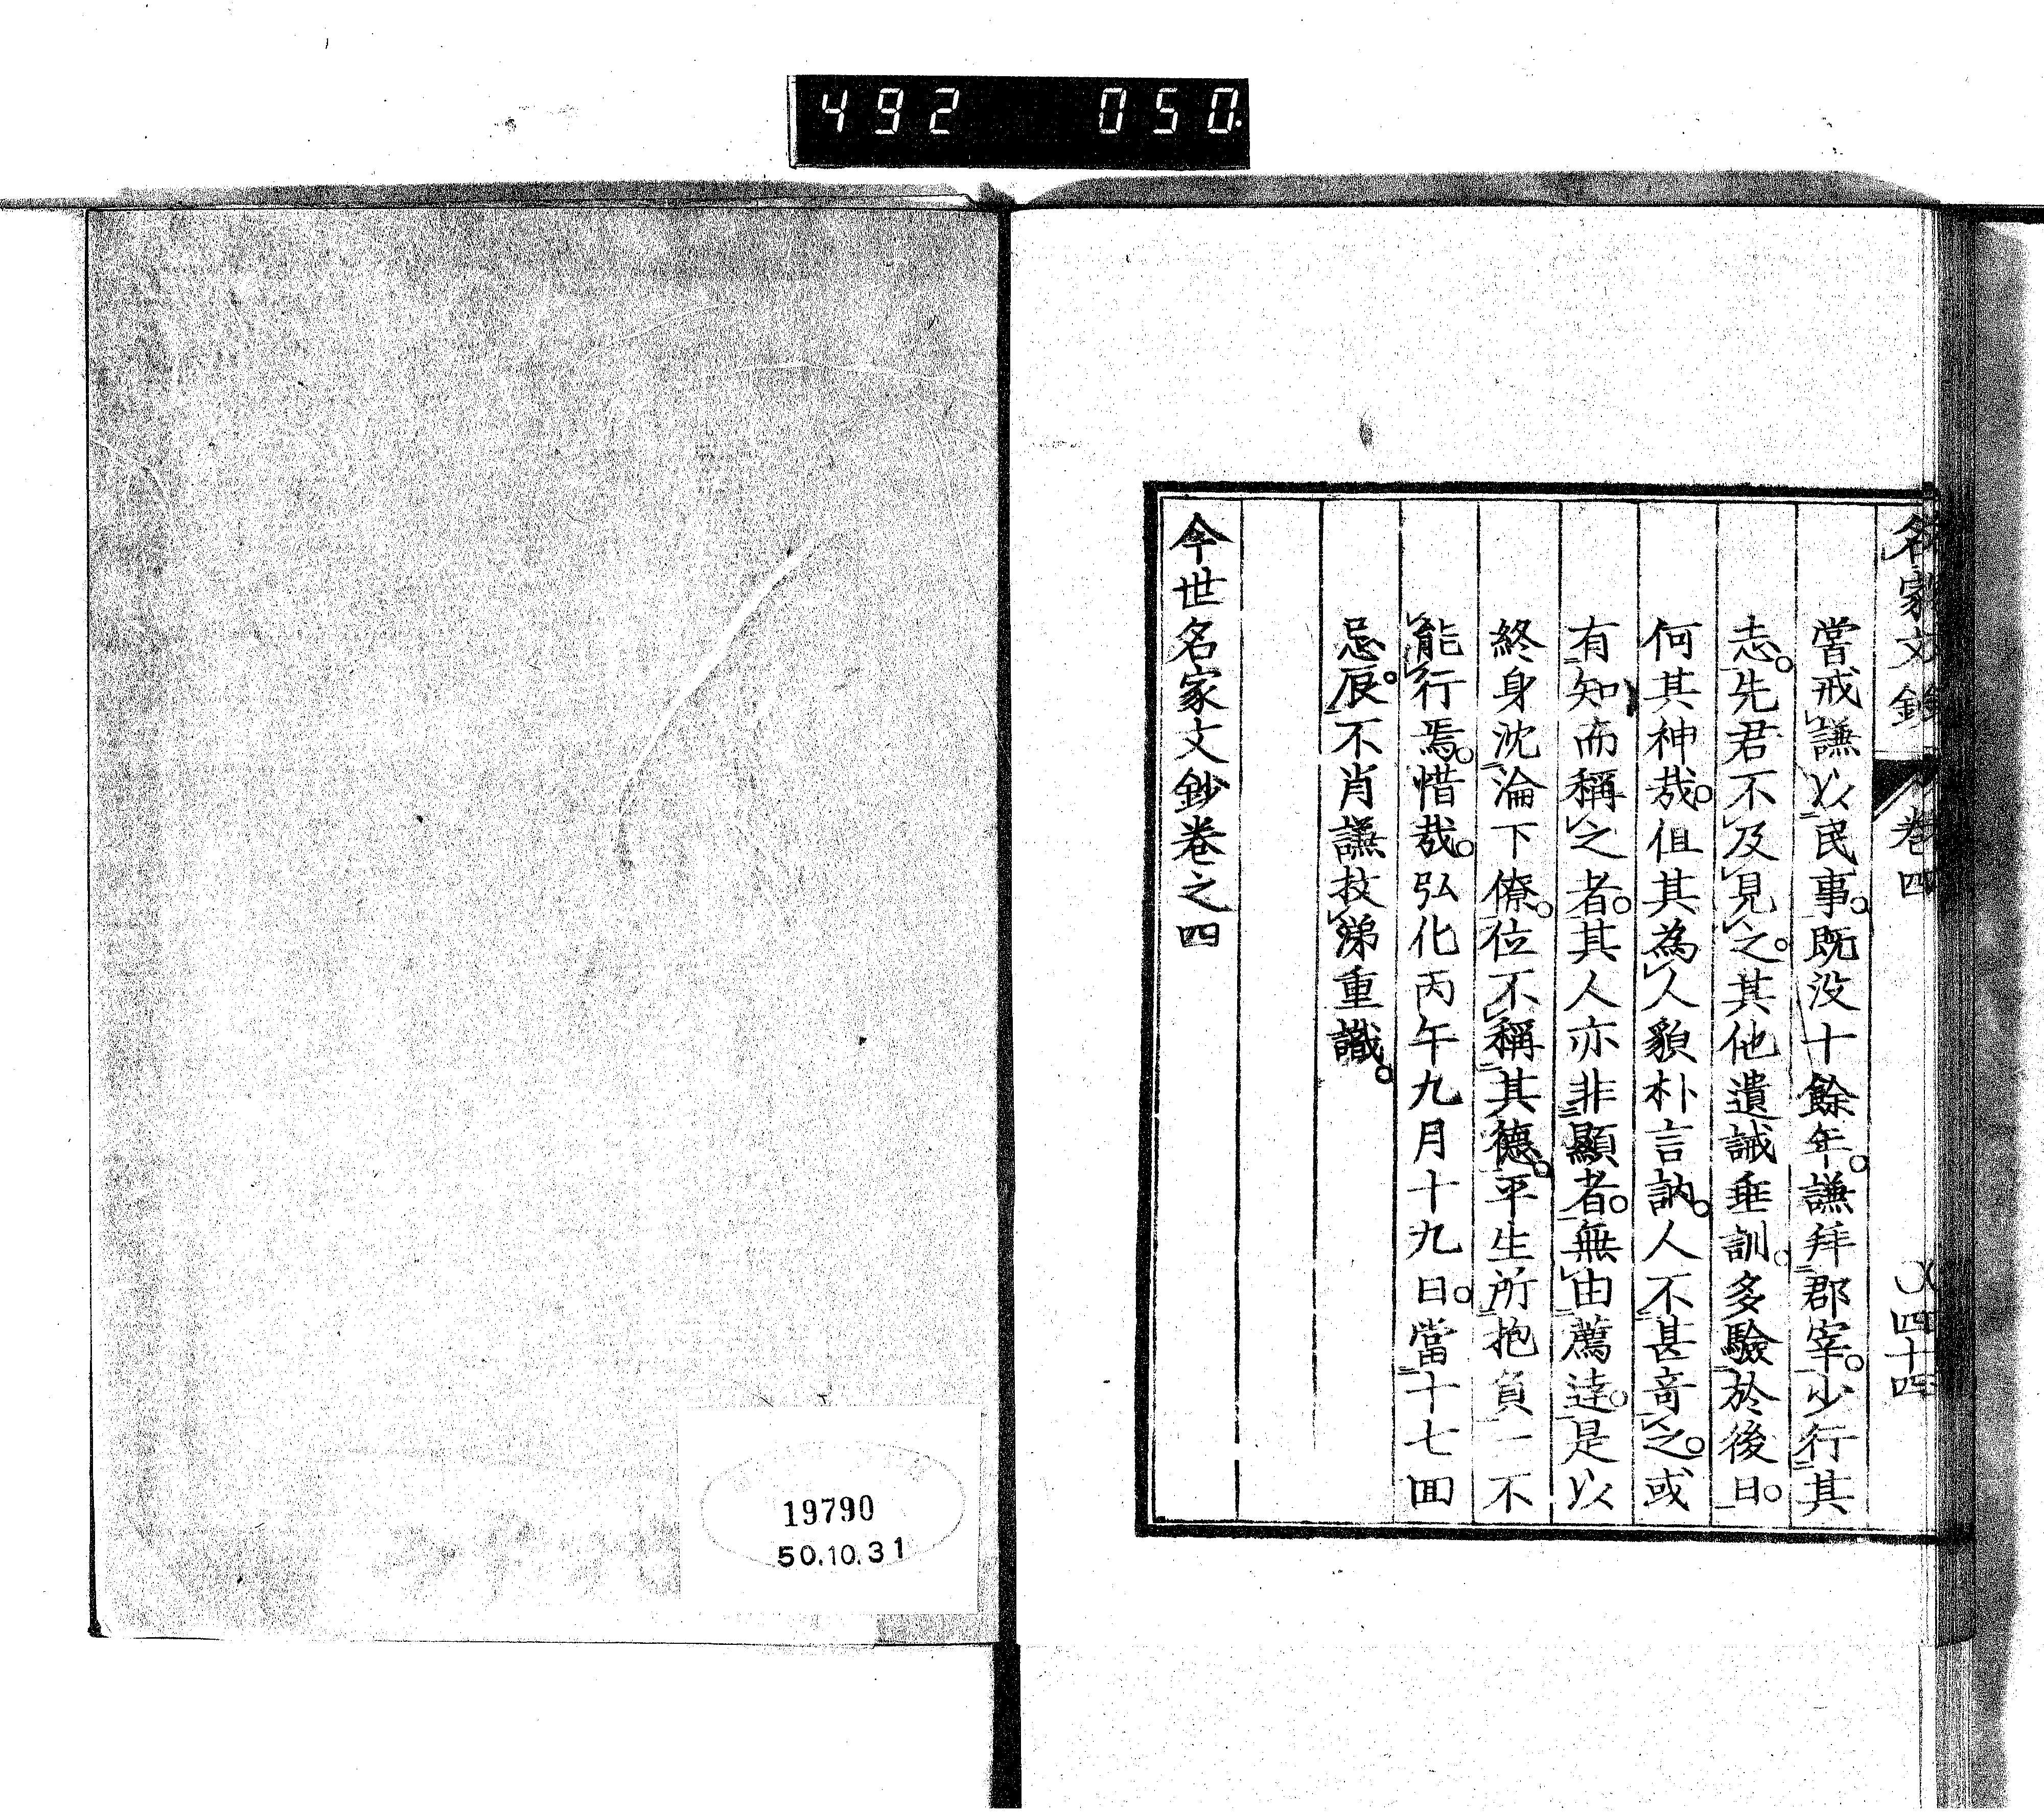 492 050
名家文鈔 卷四 〇四十四
嘗戒謙以民事。既没十餘年。謙拜郡宰。少行其
志。先君不及見之。其他遺誡垂訓。多驗於後日。
何其神哉。但其為人貌朴言訥。人不甚竒之。或
有知而稱之者。其人亦非顯者。無由薦達。是以
終身沈淪下僚。位不稱其德。平生所抱負一不
能行焉。惜哉。弘化丙午九月十九日。當十七囬
忌辰。不肖謙抆涕重識。
今世名家文鈔卷之四
19790
50.10.31